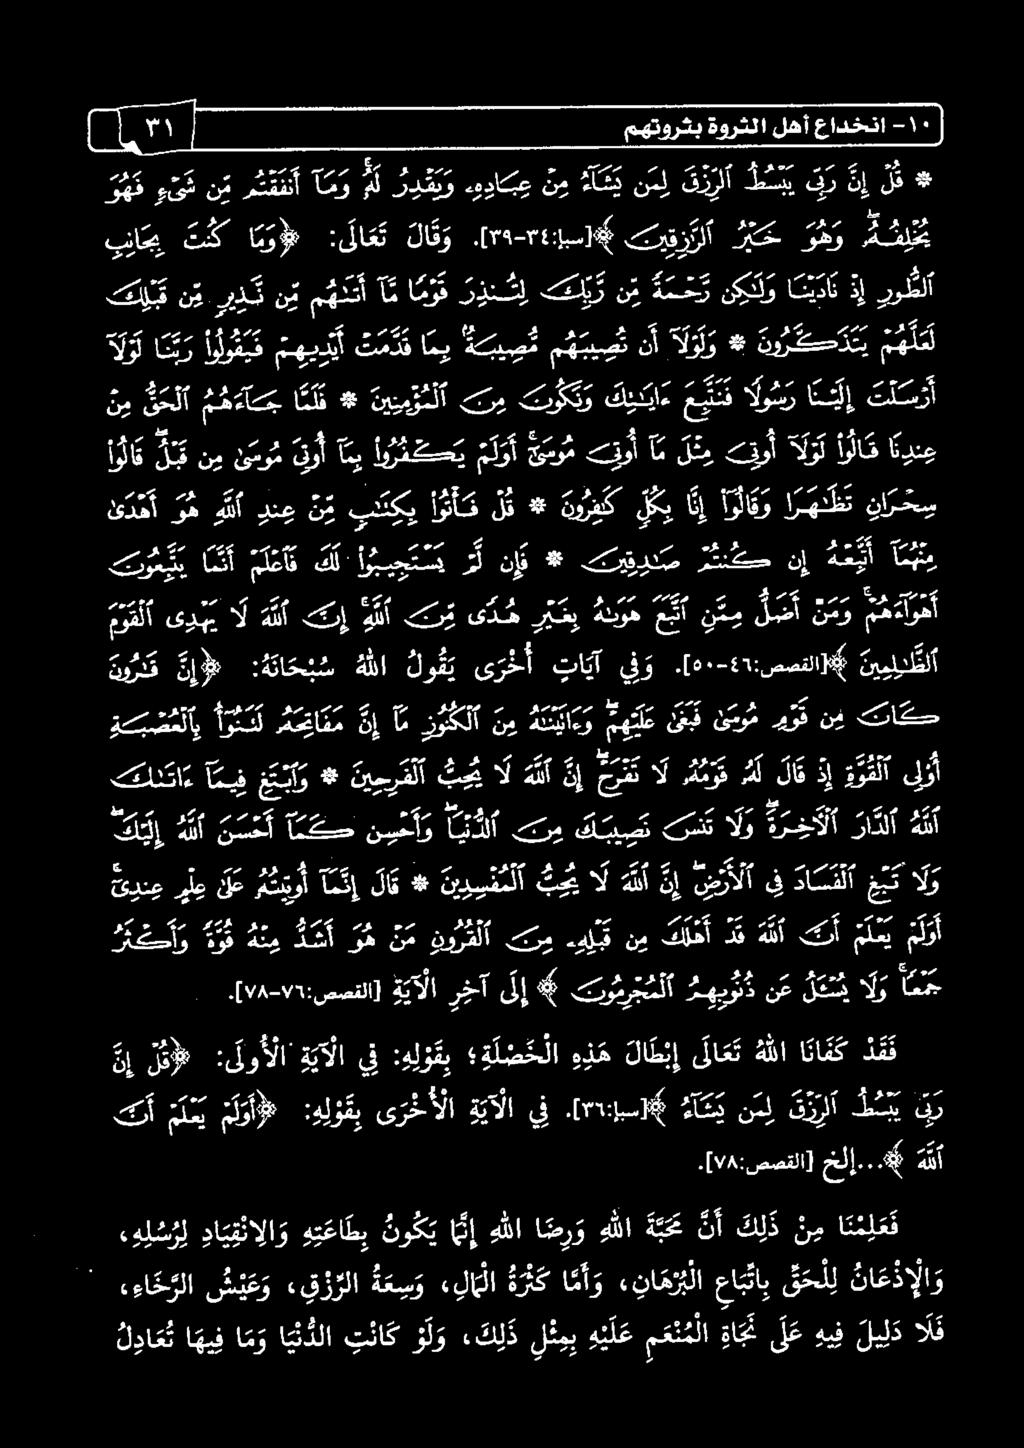 ١٠- انخداع أهل الثروة بثروتهم ٣١
* قُلْ إِنَّ رَبِّى يَبْسُطُ ٱلرِّزْقَ لِمَن يَشَآءُ مِنْ عِبَادِهِۦ وَيَقْدِرُ لَهُۥۚ وَمَآ أَنفَقْتُم مِّن شَىْءٍ فَهُوَ
يُخْلِفُهُۥۖ وَهُوَ خَيْرُ ٱلرَّٰزِقِينَ ﴾[سبأ:٣٤-٣٩]. وَقَالَ تَعَالَى: ﴿وَمَا كُنتَ بِجَانِبِ
ٱلطُّورِ إِذْ نَادَيْنَا وَلَٰكِن رَّحْمَةً مِّن رَّبِّكَ لِتُنذِرَ قَوْمًا مَّآ أَتَىٰهُم مِّن نَّذِيرٍ مِّن قَبْلِكَ
لَعَلَّهُمْ يَتَذَكَّرُونَ * وَلَوْلَآ أَن تُصِيبَهُم مُّصِيبَةٌۢ بِمَا قَدَّمَتْ أَيْدِيهِمْ فَيَقُولُوا۟ رَبَّنَا لَوْلَآ
أَرْسَلْتَ إِلَيْنَا رَسُولًا فَنَتَّبِعَ ءَايَٰتِكَ وَنَكُونَ مِنَ ٱلْمُؤْمِنِينَ * فَلَمَّا جَآءَهُمُ ٱلْحَقُّ مِنْ
عِندِنَا قَالُوا۟ لَوْلَآ أُوتِىَ مِثْلَ مَآ أُوتِىَ مُوسَىٰٓۚ أَوَلَمْ يَكْفُرُوا۟ بِمَآ أُوتِىَ مُوسَىٰ مِن قَبْلُۖ قَالُوا۟
سِحْرَانِ تَظَٰهَرَا وَقَالُوٓا۟ إِنَّا بِكُلٍّ كَٰفِرُونَ * قُلْ فَأْتُوا۟ بِكِتَٰبٍ مِّنْ عِندِ ٱللَّهِ هُوَ أَهْدَىٰ
مِنْهُمَآ أَتَّبِعْهُ إِن كُنتُمْ صَٰدِقِينَ * فَإِن لَّمْ يَسْتَجِيبُوا۟ لَكَ فَٱعْلَمْ أَنَّمَا يَتَّبِعُونَ
أَهْوَآءَهُمْۚ وَمَنْ أَضَلُّ مِمَّنِ ٱتَّبَعَ هَوَىٰهُ بِغَيْرِ هُدًى مِّنَ ٱللَّهِۚ إِنَّ ٱللَّهَ لَا يَهْدِى ٱلْقَوْمَ
ٱلظَّٰلِمِينَ ﴾[القصص:٤٦-٥٠]. وَفِي آيَاتٍ أُخْرَى يَقُولُ اللهُ سُبْحَانَهُ: ﴿إِنَّ قَٰرُونَ
كَانَ مِن قَوْمِ مُوسَىٰ فَبَغَىٰ عَلَيْهِمْۖ وَءَاتَيْنَٰهُ مِنَ ٱلْكُنُوزِ مَآ إِنَّ مَفَاتِحَهُۥ لَتَنُوٓأُ بِٱلْعُصْبَةِ
أُو۟لِى ٱلْقُوَّةِ إِذْ قَالَ لَهُۥ قَوْمُهُۥ لَا تَفْرَحْۖ إِنَّ ٱللَّهَ لَا يُحِبُّ ٱلْفَرِحِينَ * وَٱبْتَغِ فِيمَآ ءَاتَىٰكَ
ٱللَّهُ ٱلدَّارَ ٱلْأَخِرَةَۖ وَلَا تَنسَ نَصِيبَكَ مِنَ ٱلدُّنْيَاۖ وَأَحْسِن كَمَآ أَحْسَنَ ٱللَّهُ إِلَيْكَۖ
وَلَا تَبْغِ ٱلْفَسَادَ فِى ٱلْأَرْضِۖ إِنَّ ٱللَّهَ لَا يُحِبُّ ٱلْمُفْسِدِينَ * قَالَ إِنَّمَآ أُوتِيتُهُۥ عَلَىٰ عِلْمٍ عِندِىٓۚ
أَوَلَمْ يَعْلَمْ أَنَّ ٱللَّهَ قَدْ أَهْلَكَ مِن قَبْلِهِۦ مِنَ ٱلْقُرُونِ مَنْ هُوَ أَشَدُّ مِنْهُ قُوَّةً وَأَكْثَرُ
جَمْعًاۚ وَلَا يُسْـَٔلُ عَن ذُنُوبِهِمُ ٱلْمُجْرِمُونَ ﴾ إِلَى آخِرِ الْآيَةِ [القصص:٧٦-٧٨].
فَقَدْ كَفَانَا اللهُ تَعَالَى إِبْطَالَ هَذِهِ الْخَصْلَةِ؛ بِقَوْلِهِ: فِي الْآيَةِ الْأُولَى: ﴿قُلْ إِنَّ
رَبِّى يَبْسُطُ ٱلرِّزْقَ لِمَن يَشَآءُ ﴾[سبأ:٣٦]. فِي الْآيَةِ الْأُخْرَى بِقَوْلِهِ: ﴿أَوَلَمْ يَعْلَمْ أَنَّ
ٱللَّهَ ﴾...إلخ [القصص:٧٨].
فَعَلِمْنَا مِنْ ذَلِكَ أَنَّ مَحَبَّةَ اللهِ وَرِضَا اللهِ إِنَّمَا يَكُونُ بِطَاعَتِهِ وَالِانْقِيَادِ لِرُسُلِهِ،
وَالْإِذْعَانُ لِلْحَقِّ بِاتِّبَاعِ الْبُرْهَانِ، وَأَمَّا كَثْرَةُ الْمَالِ، وَسِعَةُ الرِّزْقِ، وَعَيْشُ الرَّخَاءِ،
فَلَا دَلِيلَ فِيهِ عَلَى نَجَاةِ الْمُنْعَمِ عَلَيْهِ بِمِثْلِ ذَلِكَ، وَلَوْ كَانَتِ الدُّنْيَا وَمَا فِيهَا تُعَادِلُ